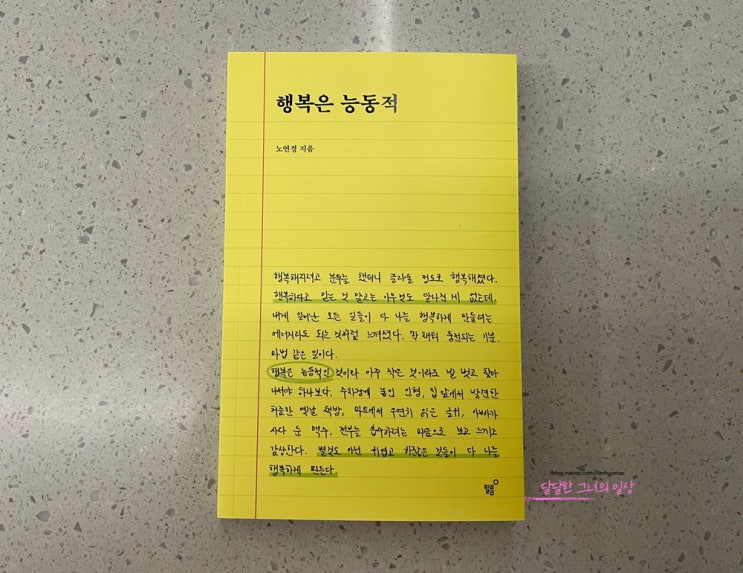 행복은 능동적
노연경 지음
행복해지려고 분투를 했더니 놀라울 정도로 행복해졌다.
행복하다고 믿는 것 말고는 아무것도 달라진 게 없는데,
내게 일어난 모든 일들이 다 나를 행복하게 만들려는
에너지라도 되는 것처럼 느껴졌다. 꽉 채워 충전되는 기분.
마법 같은 일이다.
행복은 능동적인 것이라 아주 작은 것이라도 발 벗고 찾아
나서야 하나보다. 주차장에 놓인 인형, 집 앞에서 발견한
허름한 옛날 책방, 마트에서 우연히 읽은 글귀, 아빠가
사다 준 맥주, 전부를 흡수하려는 마음으로 보고 느끼고
감상한다. 별것도 아닌 귀엽고 하찮은 것들이 다 나를
행복하게 만든다.
필름
달달한 그녀의 일상